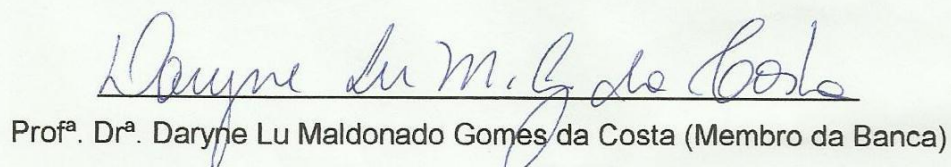 Daryne Lu M. G. da Costa
Profª. Drª. Daryne Lu Maldonado Gomes da Costa (Membro da Banca)